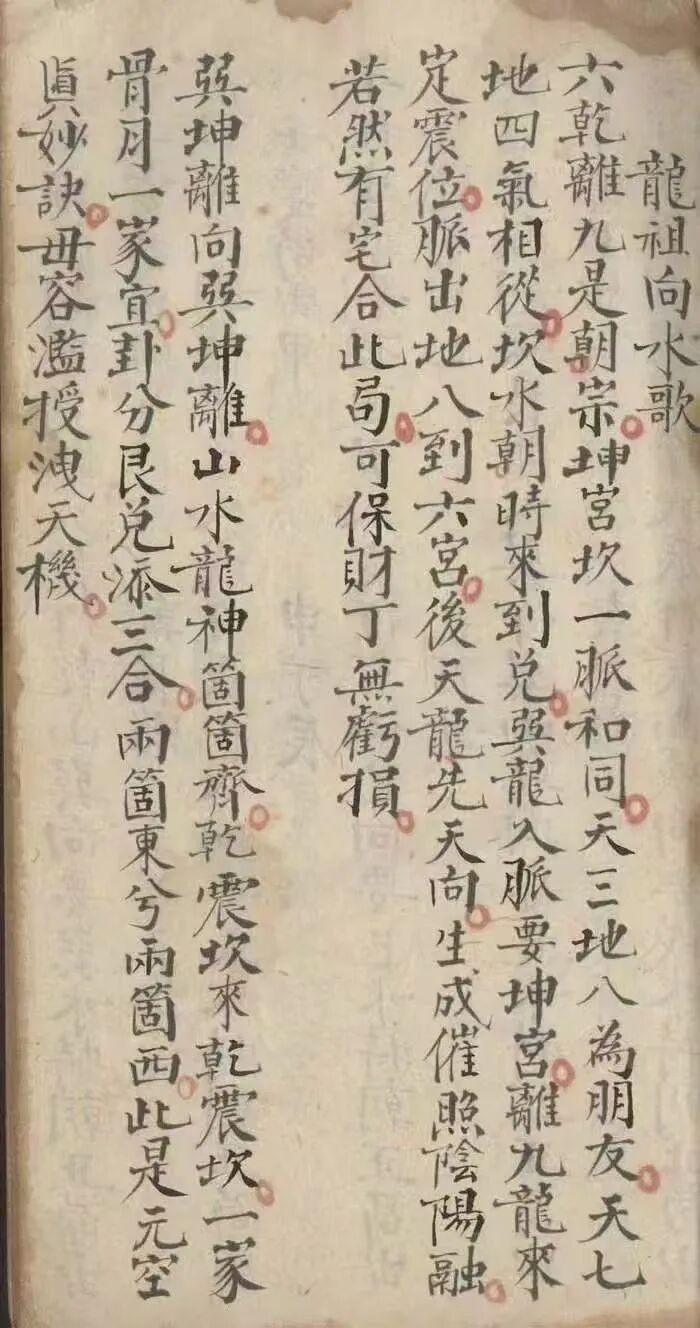 龍祖向水歌
六乾離九是朝宗坤宮坎一脈和同天三地八為朋友天七
地四氣相從坎水朝時來到兌巽龍入脈要坤宮離九龍來
定震位脈出地八到六宮後天龍先天向生成催照陰陽融
若然有宅合此局可保財丁無虧損
巽坤離向巽坤離山水龍神箇箇齊乾震坎來乾震坎一家
骨月一家宜卦分艮兌添三合兩箇東兮兩箇西此是元空
真妙訣毋容濫授洩天機